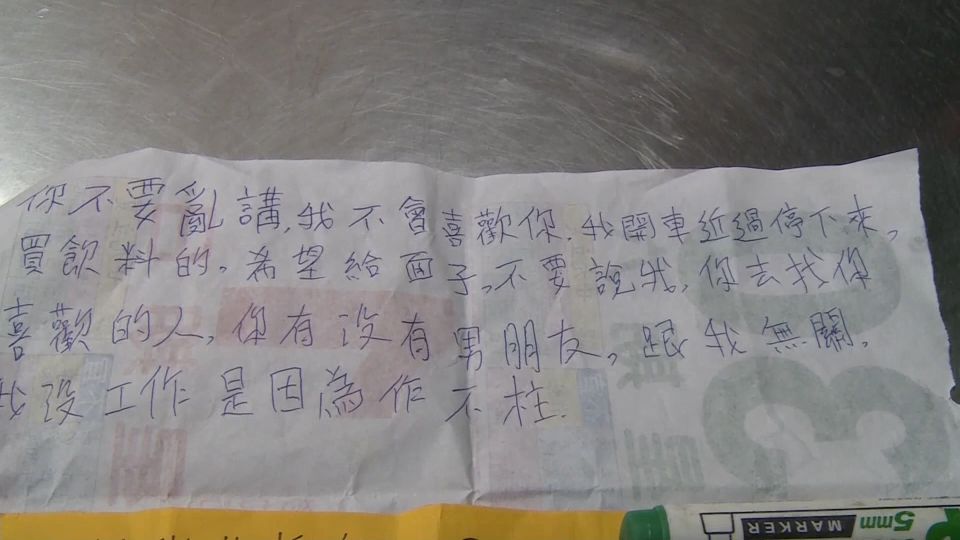 你不要亂講,我不會喜歡你.我開車近過停下來,
買飲料的.希望給面子,不要說我,你去找你
喜歡的人,你有沒有男朋友,跟我無關.
我沒工作是因為作不柱.
5mm
MARKER